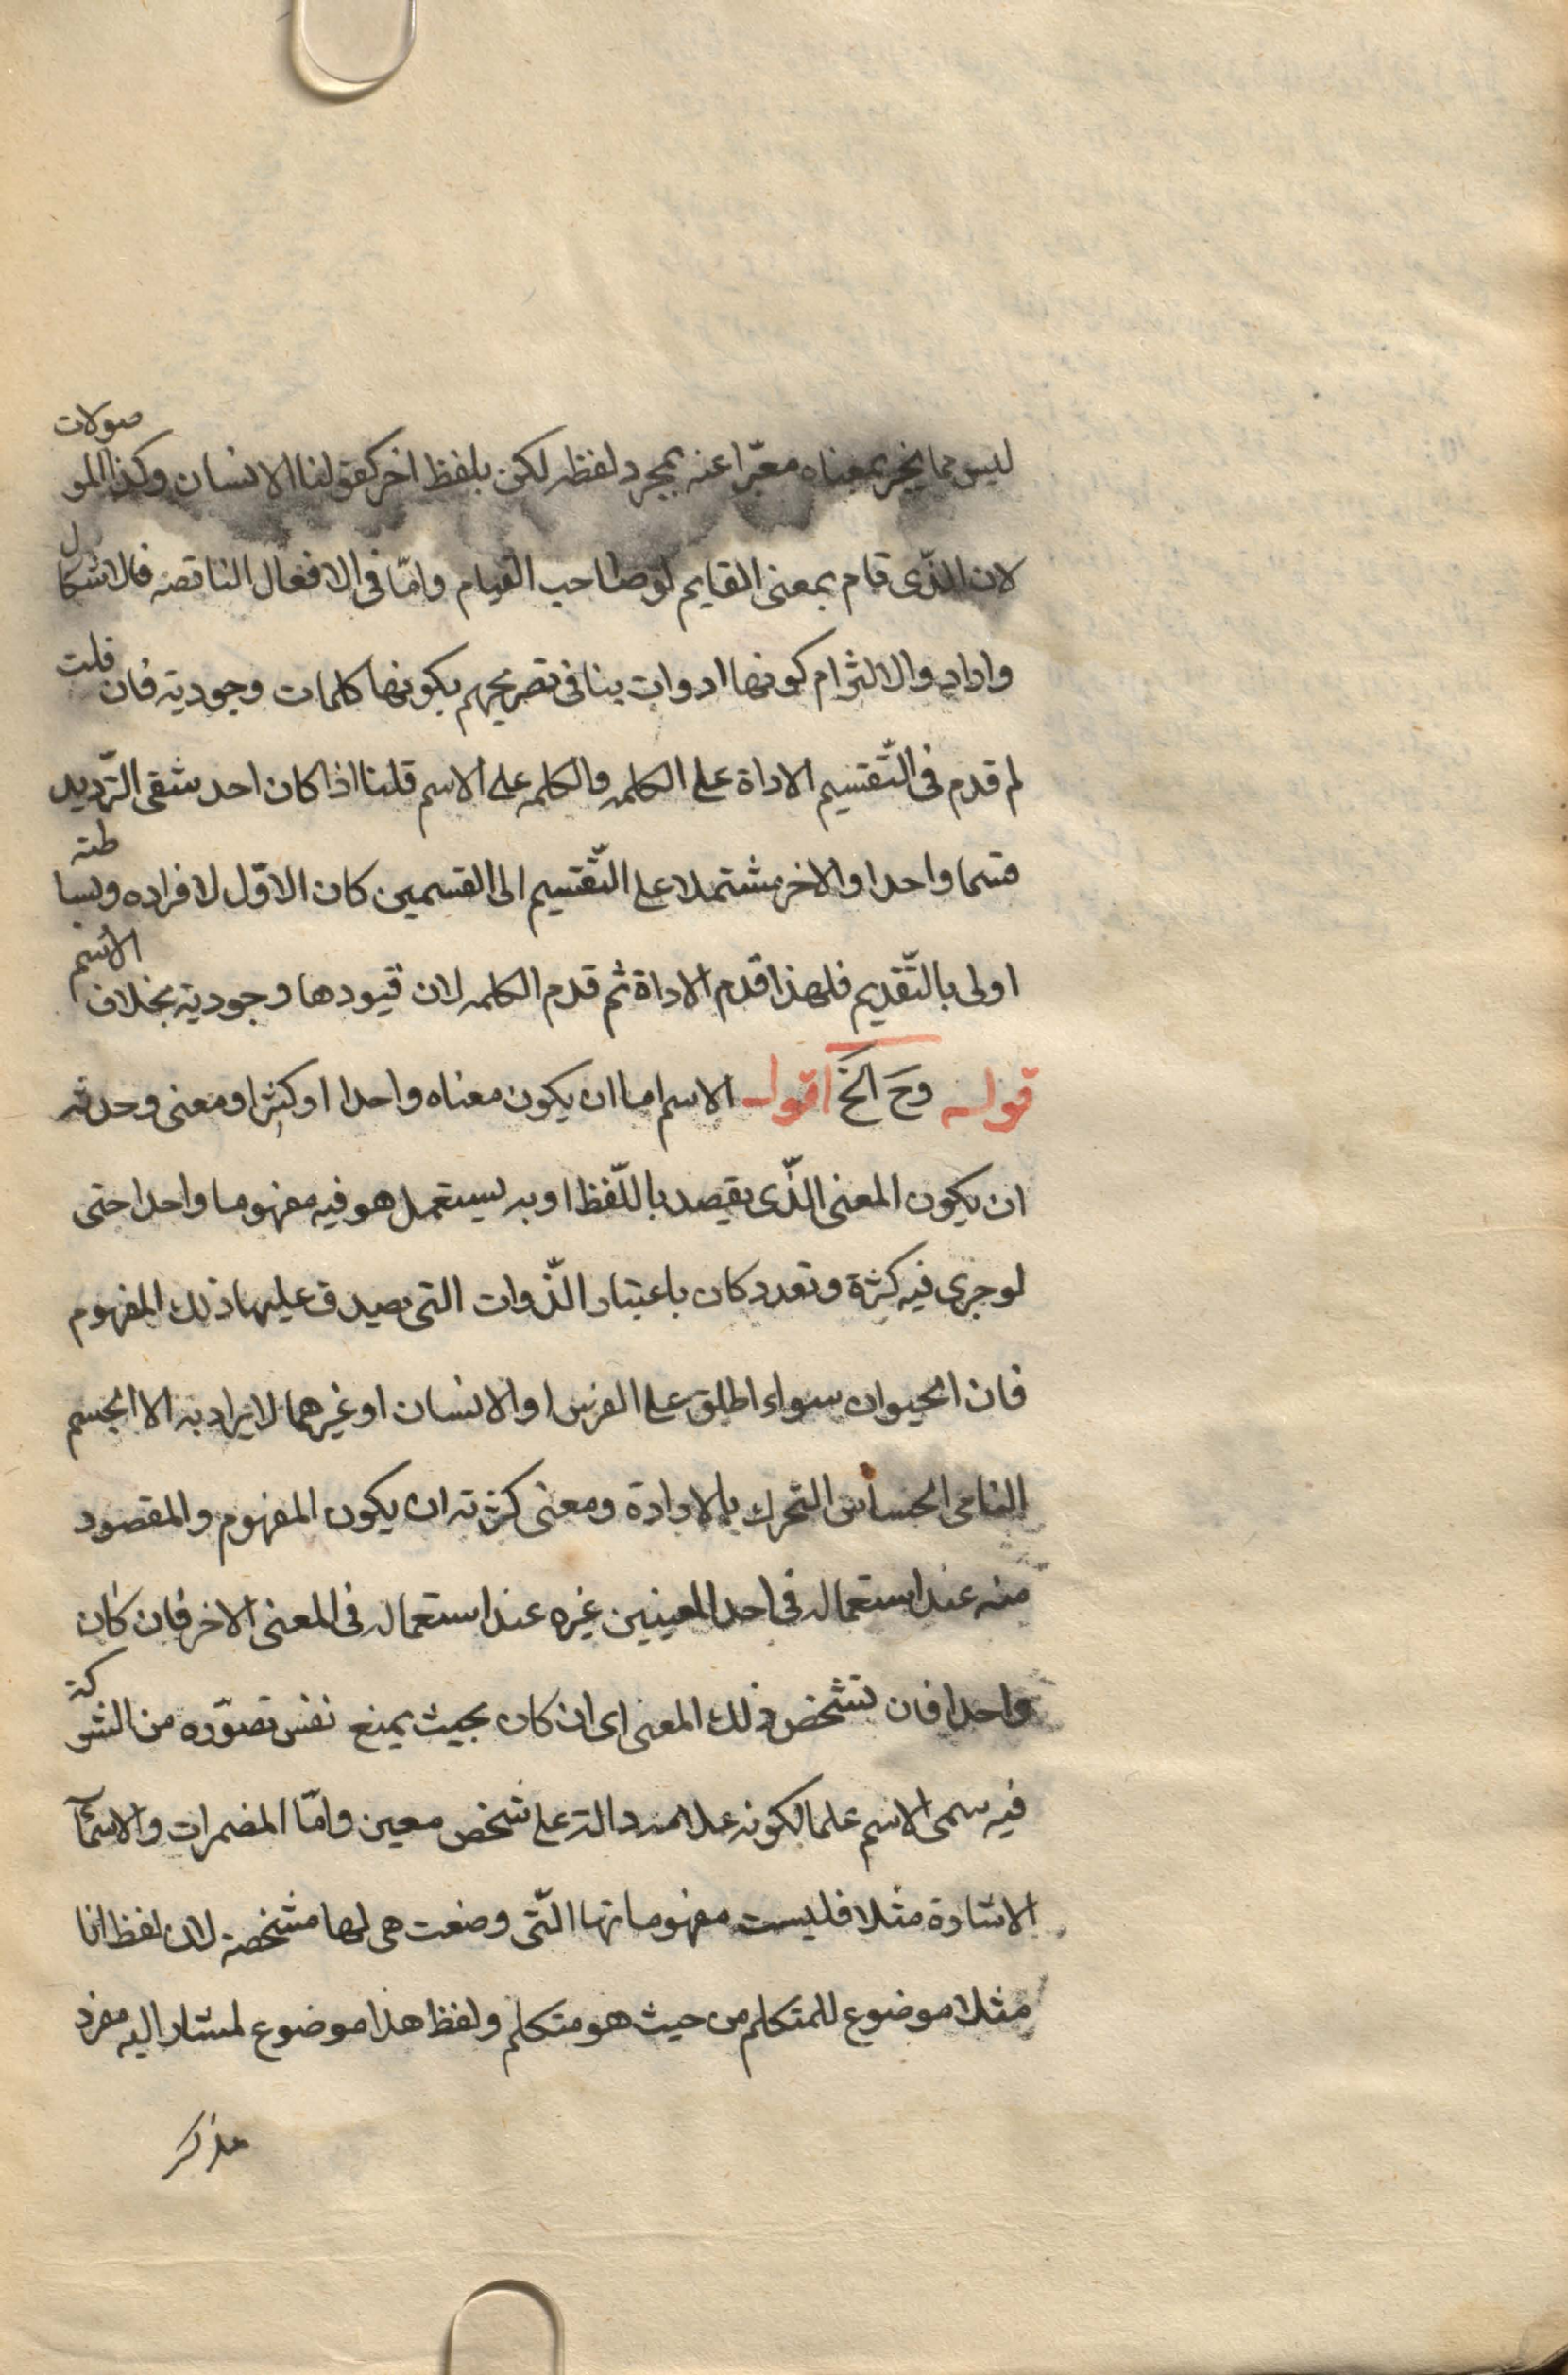 ليس مما يخبر بمعناه معبّرا عنه بمجرد لفظه لكن بلفظ اخر كقولنا الانسان وكذا الموصولات
لان الذّى قام بمعنى القايم لوصاحب القيام وامّا فى الافعال الناقصه فالاشكال
وارد والالتزام كونها ادوات ينافى تصريحهم بكونها كلمات وجودية فان قلت
لم قدم فى التّقسيم الاداة على الكلمه والكلمه على الاسم قلنا اذا كان احد شقى التّرديد
قسما واحدا والاخر مشتملا على التّقسيم الى القسمين كان الاوّل لافراده وبساطته
اولى بالتّقديم فلهذا قدم الاداة ثم قدم الكلمه لان قيودها وجودية بخلاف الاسم
قوله وحَ الخَ اقول الاسم اما ان يكون معناه واحدا او كثيرا ومعنى وحدته
ان يكون المعنى الذّى يقصد باللّفظ اوبه يستعمل هو فيه مفهوما واحدا حتى
لو جرى فيه كثرة وتعدد كان باعتبار الذّوات التى يصدق عليها ذلك المفهوم
فان الحيوان سواء اطلق على الفرس او الانسان او غيرهما لا يراد به الا الجسم
النامى الحساس التحرك بالارادة ومعنى كثرته ان يكون المفهوم والمقصود
منه عند استعماله فى احد المعينين غيره عند استعماله فى المعنى الاخر فان كان
واحدا فان تشخص ذلك المعنى اى ان كان بحيث يمنع نفس تصوّره من الشركة
فيه سمى الاسم علما لكونه علامة دالة على شخص معين وامّا المضمرات والاسمآء
الاشارة مثلا فليست مفهوماتها التّى وضعت هى لها مشخصة لان لفظ انا
مثلا موضوع للمتكلم من حيث هو متكلم ولفظ هذا موضوع لمشار اليه مفرد
مذكر